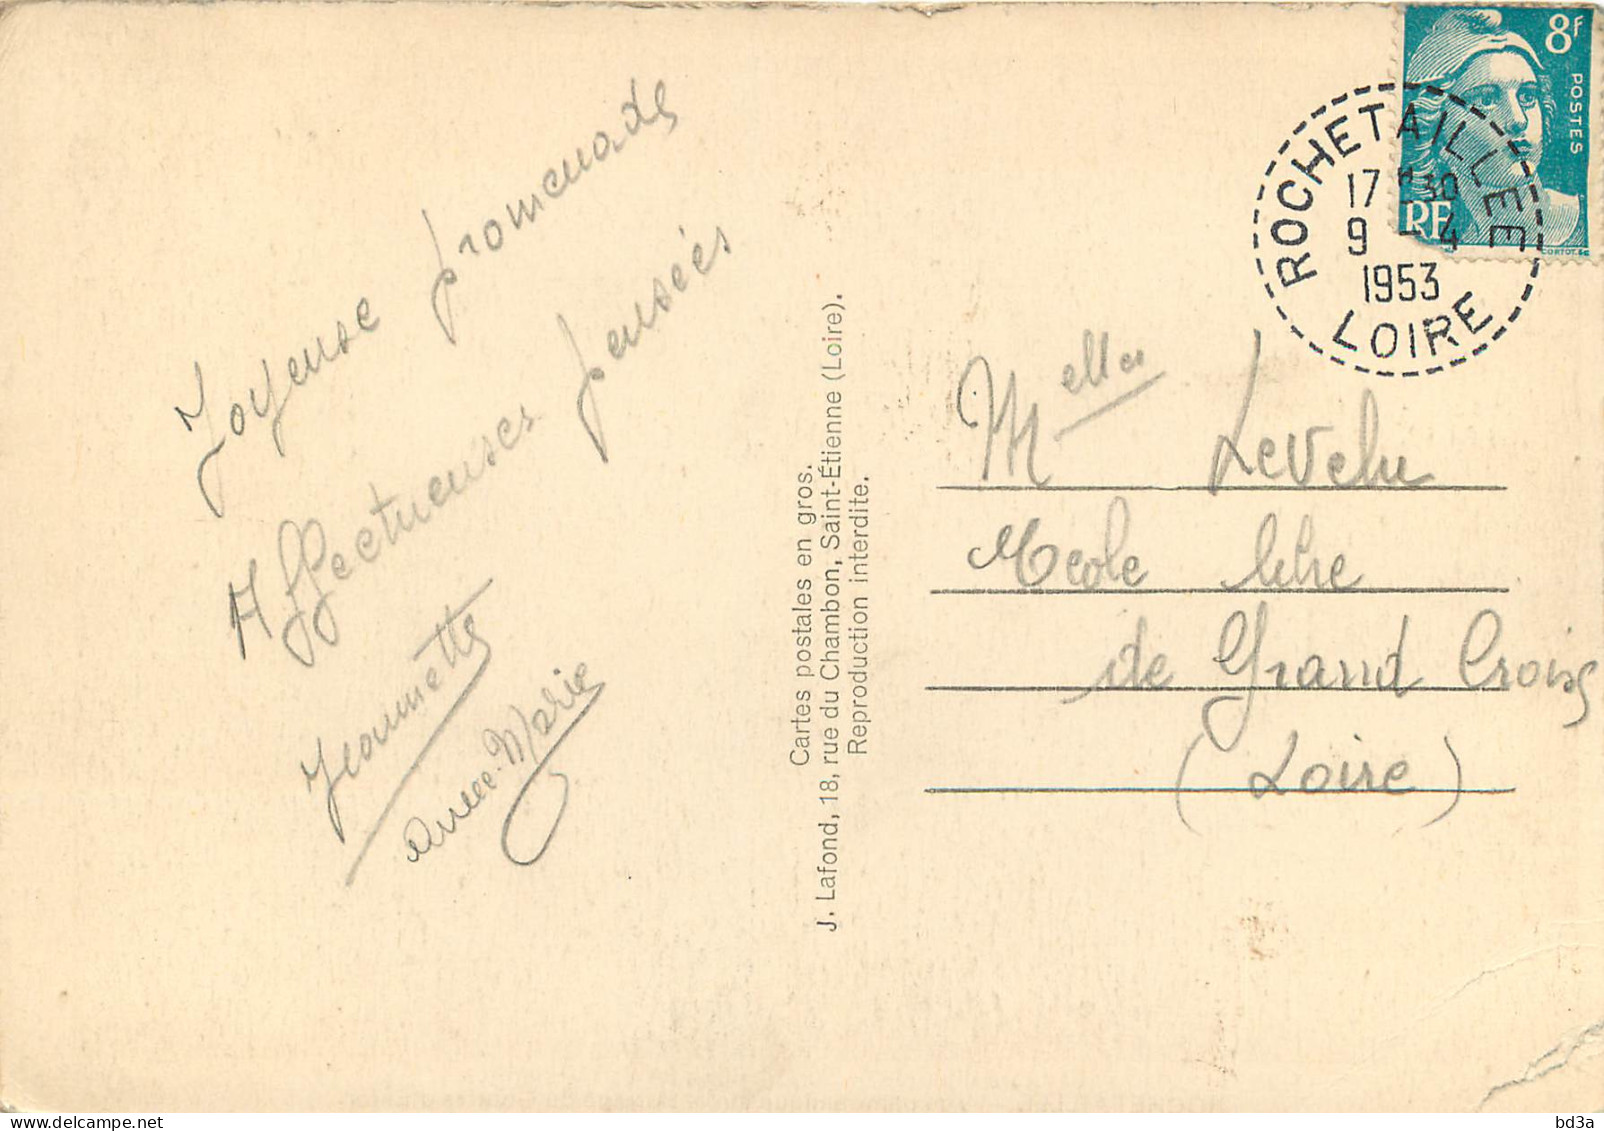 Joyeuse promenade
Affectueuses pensées
Jeannette
Anne-Marie
Cartes postales en gros.
J. Lafond, 18, rue du Chambon, Saint-Étienne (Loire).
Reproduction interdite.
8F
POSTES
RF
CORTOT.SC
ROCHETAILLEE
17 H 30
9 - 4
1953
LOIRE
Melles Levelu
Ecole libre
de Grand Croix
(Loire)
bd3a